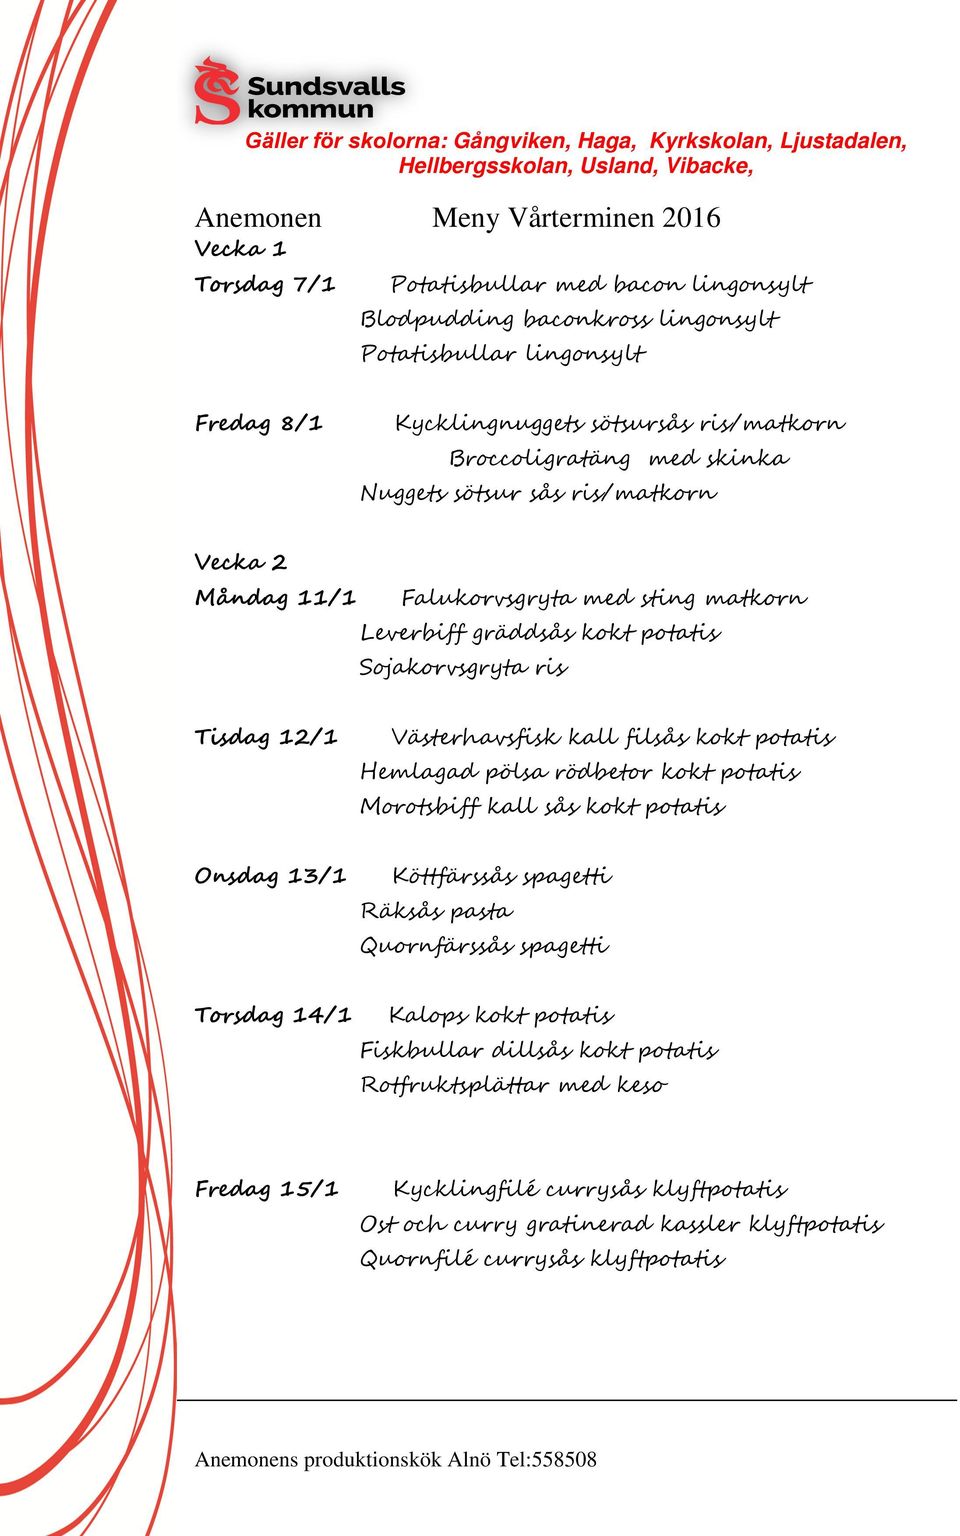 Sundsvalls
kommun
Gäller för skolorna: Gångviken, Haga, Kyrkskolan, Ljustadalen,
Hellbergsskolan, Usland, Vibacke,
Anemonen Meny Vårterminen 2016
Vecka 1
Torsdag 7/1 Potatisbullar med bacon lingonsylt
Blodpudding baconkross lingonsylt
Potatisbullar lingonsylt
Fredag 8/1 Kycklingnuggets sötsursås ris/matkorn
Broccoligratäng med skinka
Nuggets sötsur sås ris/matkorn
Vecka 2
Måndag 11/1 Falukorvsgryta med sting matkorn
Leverbiff gräddsås kokt potatis
Sojakorvsgryta ris
Tisdag 12/1 Västerhavsfisk kall filsås kokt potatis
Hemlagad pölsa rödbetor kokt potatis
Morotsbiff kall sås kokt potatis
Onsdag 13/1 Köttfärssås spagetti
Räksås pasta
Quornfärssås spagetti
Torsdag 14/1 Kalops kokt potatis
Fiskbullar dillsås kokt potatis
Rotfruktsplättar med keso
Fredag 15/1 Kycklingfilé currysås klyftpotatis
Ost och curry gratinerad kassler klyftpotatis
Quornfilé currysås klyftpotatis
Anemonens produktionskök Alnö Tel:558508